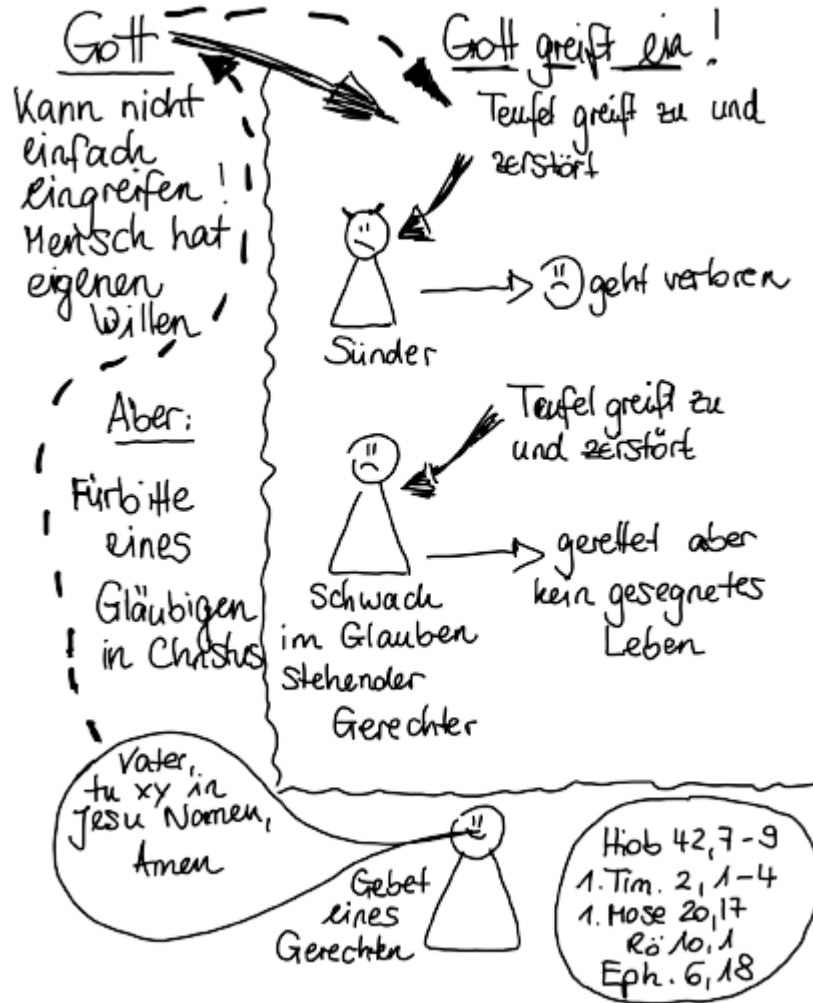 Gott
Kann nicht
einfach
eingreifen!
Mensch hat
eigenen
Willen
Aber:
Fürbitte
eines
Gläubigen
in Christus
Gott greift ein!
Teufel greift zu und
zerstört
Sünder
geht verloren
Teufel greift zu
und zerstört
Schwach
im Glauben
stehender
Gerechter
gerettet aber
kein gesegnetes
Leben
Vater,
tu xy in
Jesu Namen,
Amen
Gebet
eines
Gerechten
Hiob 42,7-9
1.Tim. 2, 1-4
1.Mose 20,17
Rö 10,1
Eph. 6,18